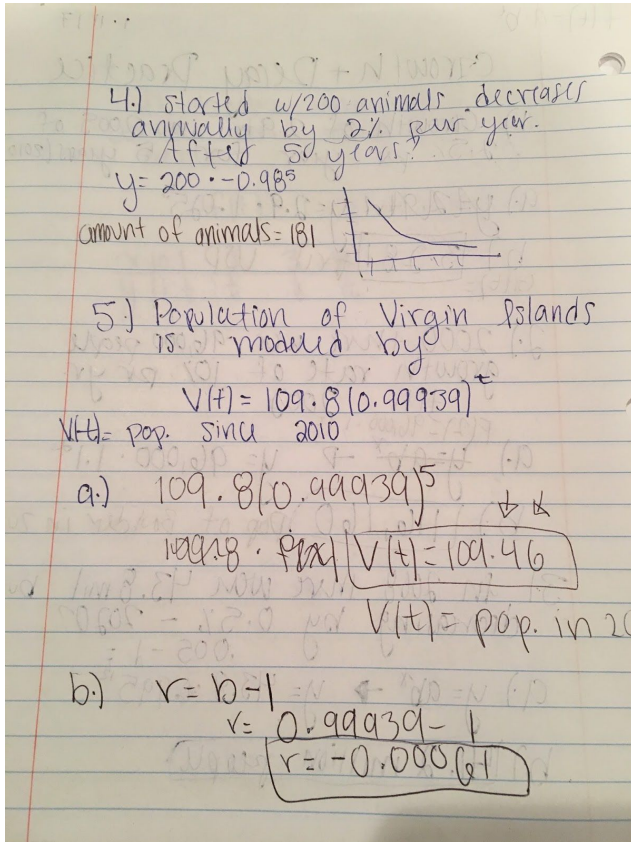 4.) started w/200 animals decreases
annually by 2% per year.
After 5 years?
y= 200 • -0.98⁵
amount of animals = 181
5.) Population of Virgin Islands
is modeled by
V(t) = 109.8(0.99939)ᵗ
V(t)= pop. since 2010
a.) 109.8(0.99939)⁵
V(t) = 109.46
V(t) = pop. in 20
b.) r= b-1
r= 0.99939 - 1
r= -0.00061